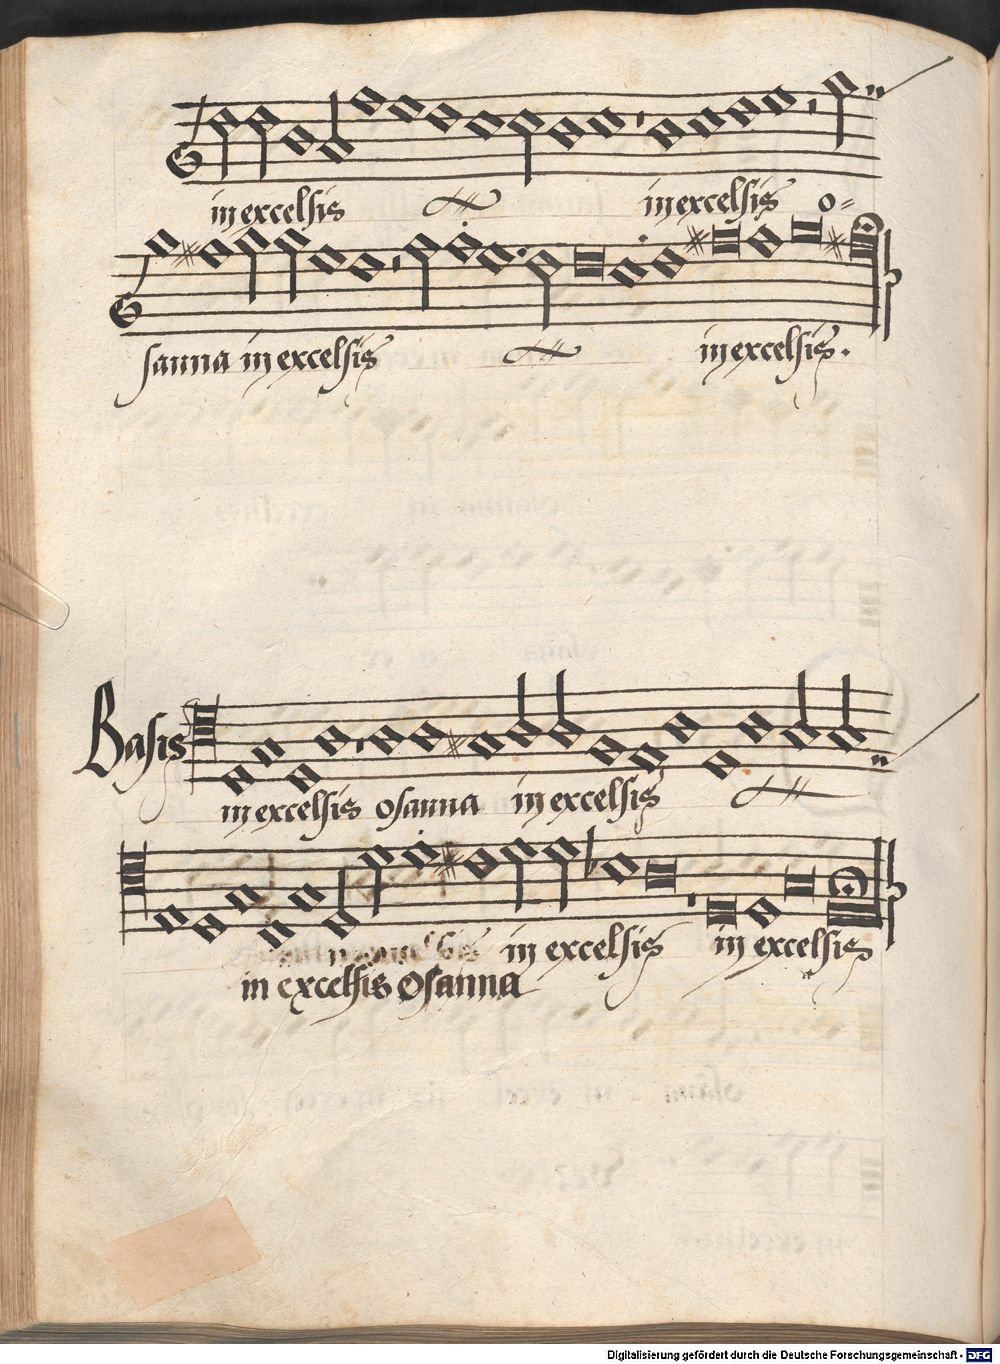 in excelsis in excelsis o=
sanna in excelsis in excelsis.
Basis
in excelsis osanna in excelsis
in excelsis in excelsis
in excelsis Osanna
Digitalisierung gefördert durch die Deutsche Forschungsgemeinschaft - DFG